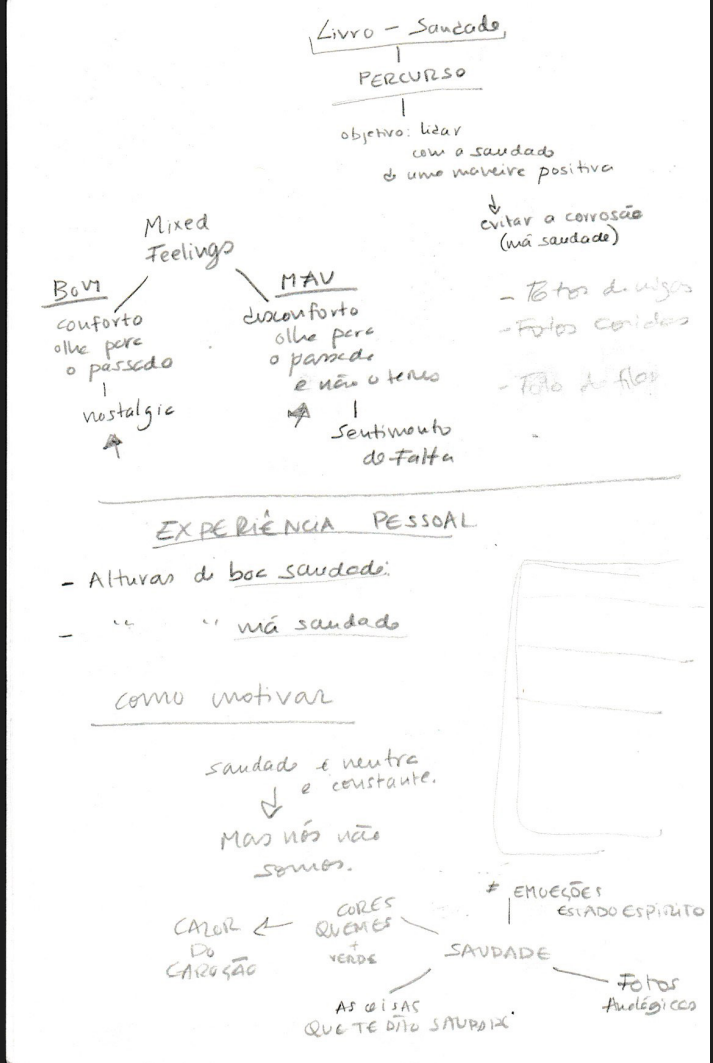 Livro - Saudade
PERCURSO
objetivo: lidar
com a saudade
d uma maneira positiva
evitar a corrosão
(má saudade)
Mixed
Feelings
BOM
conforto
olhe para
o passado
nostalgia
MAU
disconforto
olhe para
o passado
e não o teres
Sentimento
de Falta
- Fotos
- Fotos
- Foto
EXPERIÊNCIA PESSOAL
- Alturas d boa saudade:
- " " má saudade
como motivar
saudade é neutra
e constante.
Mas nós não
somos.
≠ EMOEÇÕES
ESTADO ESPIRITO
CORES
QUEMES
+
VERDE
CALOR
DO
CAROÇÃO
SAUDADE
Fotos
Analógicas
AS COISAS
QUE TE DÃO SAUDADE.